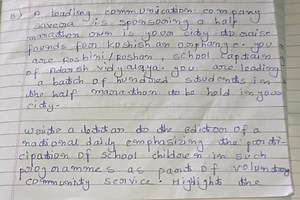 A leading communication company
is sponsoring a half
marathon own is your city to raise
founds foor Koshish an orphange. you
are Roshini/Roshan, school captain
of Adarsh vidyalaya. you are leading
a batch of hundred students in
the half marathon to be held in your
city.
write a letter to the editor of a
national daily emphasizing the parti-
cipation of school children in such
programmes as part of voluntary
community service. Highlight the